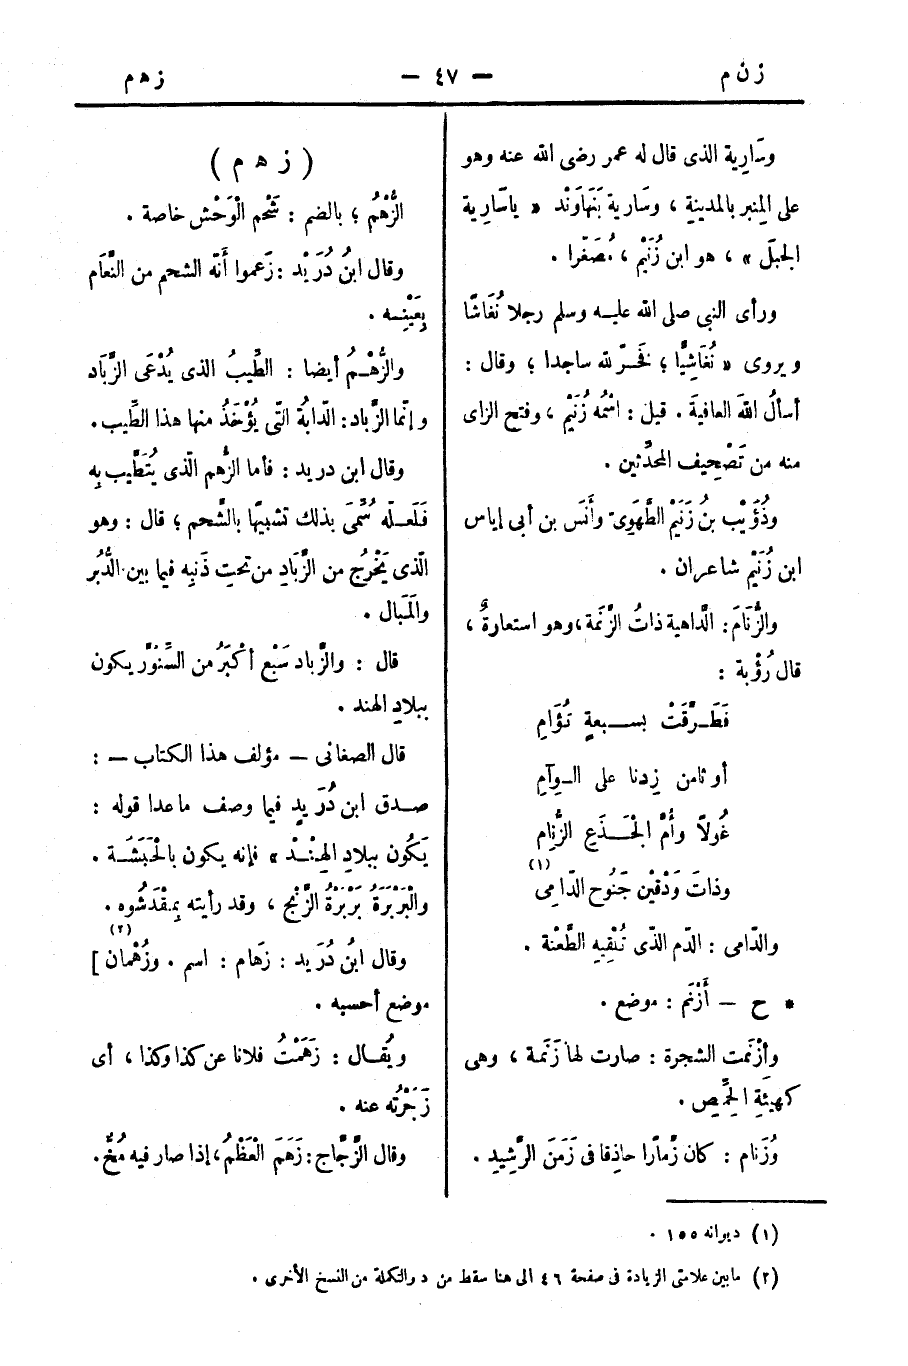 زنم
— ٤٧ —
زهم
وسَارِية الذى قال له عمر رضى الله عنه وهو
على المِنبر بالمدينةِ ، وسَارية بَنَهاوَنْد « ياسَارِية
الجبَلَ » ، هو ابن زُنَيْم ، مُصَغَّرا .
ورأى النبى صلى الله عليه وسلم رجلا نُغَاشًا
ويروى « نُغَاشِيًّا ؛ فَخَرّ لله ساجدا ؛ وقال :
أسألُ اللهَ العافيةَ . قيل : اسْمُه زُنَيْم ، وفتح الزاى
منه من تَصْحِيف المحدِّثين .
وذُؤَيْب بنُ زُنَيْم الطُّهَوِىّ وأَنَس بن أبى إياس
ابن زُنَيْم شاعران .
والزُّنَامَ : الدَّاهية ذاتُ الزَّنَمة ، وهو استعارةٌ ،
قال رُؤْبة :
فَطَـرَّقَتْ بســبعةٍ تُؤَامِ
أو ثامن زِدنا على الـوِآمِ
غُولاً وأُمّ الجَـــذَعِ الزُّنِام
وذاتَ وَدْقَيْن جَنُوح الدَّامِى (١)
والدّامى : الدّم الذى تُنْقِيه الطَّعْنة .
* ح — أَزْنَم : موضع .
وأَزْنَمت الشجرة : صارت لها زَنَمة ، وهى
كهيئَةِ الحِمَّص .
وزُنَام : كان زَمّارًا حاذِقا فى زَمَنَ الرَّشِيد .
( زهم )
الزُّهْمُ ؛ بالضم : شَحْم الْوَحْش خاصة .
وقال ابنُ دُرَيْد : زَعموا أَنّه الشحم من النَّعَام
بِعَيْنِـه .
والزُّهْـمُ أيضا : الطِّيبُ الذى يُدْعَى الزَّبَاد
وإنّما الزَّباد : الدّابةُ التّى يُؤْخَذُ منها هذا الطِّيب .
وقال ابن دريد : فأما الزُّهم الّذى يُتَطَّيب بِه
فَلَعـلّه سُمِّىَ بذلك تشبيهًا بالشَّحم ؛ قال : وهو
الّذى يَخْرُج من الزَّبَادِ من تحتِ ذَنبِه فيما بين الدُّبُر
والمَبال .
قال : والزَّباد سَبْع أَكْبَرُ من السِّنَّوْر يكون
ببلادِ الهند .
قال الصغانى — مؤلف هذا الكتاب — :
صـدق ابن دُرَيدٍ فيما وصف ما عدا قوله :
يَكُون ببلادِ الهِنْـد » فإنه يكون بالْحَبَشَـة .
والْبَرْبَرَةُ بَرْبَرَةُ الزَّنْج ، وقد رأيته بِمقْدَشُوه .
وقال ابنُ دُرَيد : زهَام : اسم . وزُهْمان (٢) ]
موضع أحسبه .
ويُقـال : زَهَمْتُ فلانا عن كذا وكذا ، أى
زَجَرْتُه عنه .
وقال الزَّجّاج : زَهَمَ الْعَظْمُ ، إذا صار فيه مُخٌّ .
(١) ديوانه ١٥٥ .
(٢) مابين علامتى الزيادة فى صفحة ٤٦ الى هنا سقط من د والتكملة من النسخ الأخرى .